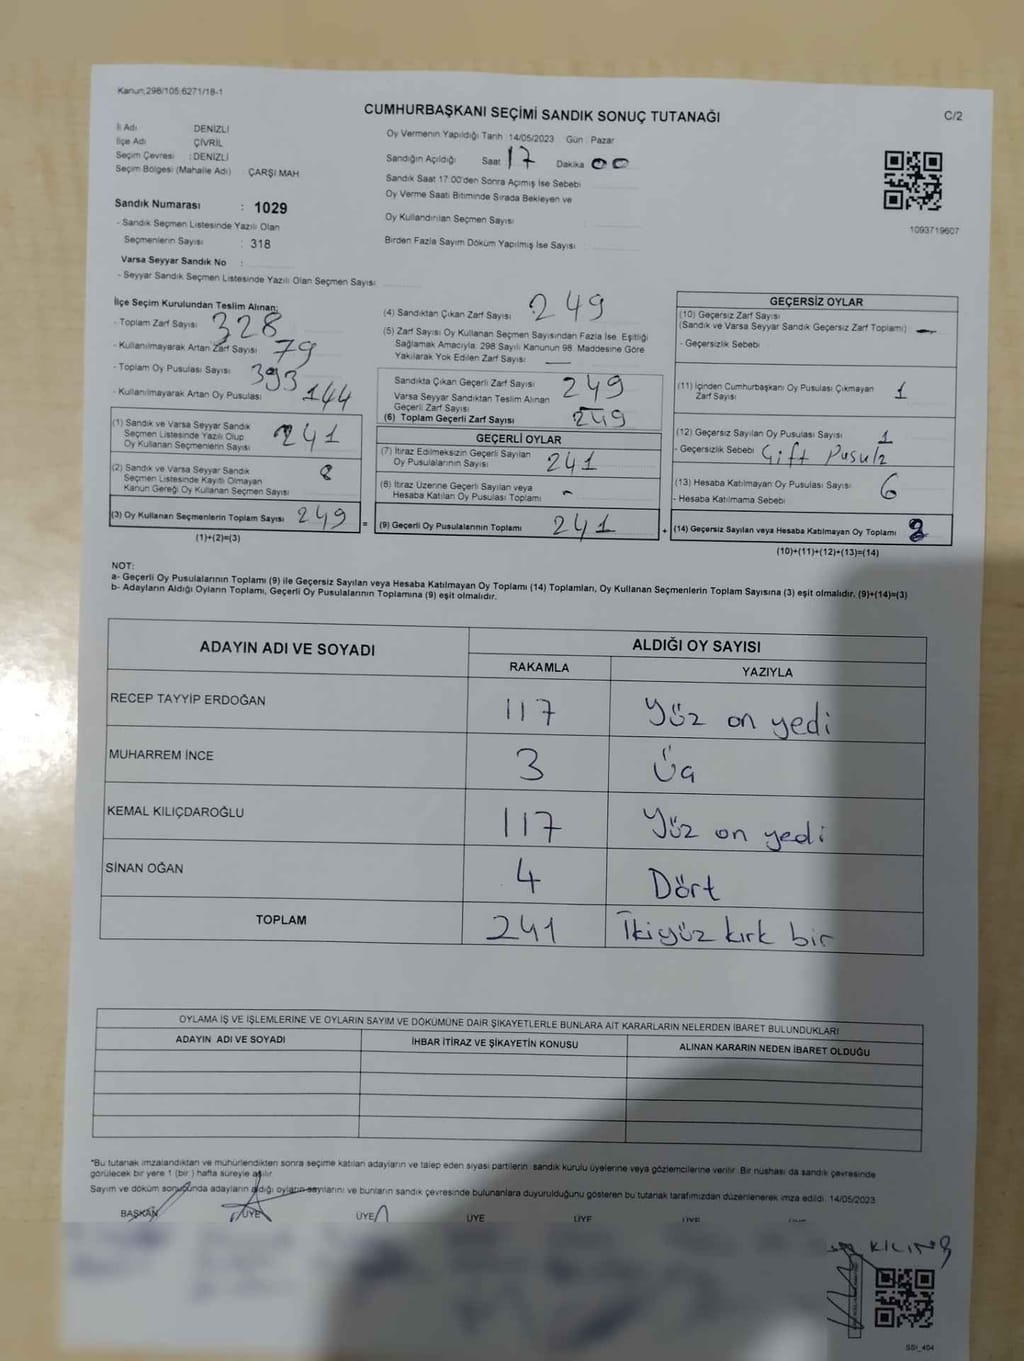 Kanun;298/105;6271/18-1
CUMHURBAŞKANI SEÇİMİ SANDIK SONUÇ TUTANAĞI
C/2
İl Adı DENİZLİ
İlçe Adı ÇİVRİL
Seçim Çevresi : DENİZLİ
Seçim Bölgesi (Mahalle Adı) : ÇARŞI MAH.
Sandık Numarası : 1029
- Sandık Seçmen Listesinde Yazılı Olan
Seçmenlerin Sayısı : 318
Varsa Seyyar Sandık No :
- Seyyar Sandık Seçmen Listesinde Yazılı Olan Seçmen Sayısı
Oy Vermenin Yapıldığı Tarih :14/05/2023 Gün : Pazar
Sandığın Açıldığı Saat 17 Dakika 00
Sandık Saat 17:00'den Sonra Açımış İse Sebebi
Oy Verme Saati Bitiminde Sırada Bekleyen ve
Oy Kullandırılan Seçmen Sayısı
Birden Fazla Sayım Döküm Yapılmış İse Sayısı
1093719607
İlçe Seçim Kurulundan Teslim Alınan;
- Toplam Zarf Sayısı 328
- Kullanılmayarak Artan Zarf Sayısı 79
- Toplam Oy Pusulası Sayısı 393
- Kullanılmayarak Artan Oy Pusulası 144
(1) Sandık ve Varsa Seyyar Sandık
Seçmen Listesinde Yazılı Olup
Oy Kullanan Seçmenlerin Sayısı 241
(2) Sandık ve Varsa Seyyar Sandık
Seçmen Listesinde Kayıtlı Olmayan
Kanun Gereği Oy Kullanan Seçmen Sayısı 8
(3) Oy Kullanan Seçmenlerin Toplam Sayısı 249 =
(1)+(2)=(3)
(4) Sandıktan Çıkan Zarf Sayısı 249
(5) Zarf Sayısı Oy Kullanan Seçmen Sayısından Fazla İse, Eşitliği
Sağlamak Amacıyla, 298 Sayılı Kanunun 98. Maddesine Göre
Yakılarak Yok Edilen Zarf Sayısı —
Sandıkta Çıkan Geçerli Zarf Sayısı 249
Varsa Seyyar Sandıktan Teslim Alınan
Geçerli Zarf Sayısı —
(6) Toplam Geçerli Zarf Sayısı 249
GEÇERLİ OYLAR
(7) İtiraz Edilmeksizin Geçerli Sayılan
Oy Pusulalarının Sayısı 241
(8) İtiraz Üzerine Geçerli Sayılan veya
Hesaba Katılan Oy Pusulası Toplamı -
(9) Geçerli Oy Pusulalarının Toplamı 241 +
GEÇERSİZ OYLAR
(10) Geçersiz Zarf Sayısı
(Sandık ve Varsa Seyyar Sandık Geçersiz Zarf Toplamı) —
- Geçersizlik Sebebi
(11) İçinden Cumhurbaşkanı Oy Pusulası Çıkmayan
Zarf Sayısı 1
(12) Geçersiz Sayılan Oy Pusulası Sayısı 1
- Geçersizlik Sebebi Çift Pusula
(13) Hesaba Katılmayan Oy Pusulası Sayısı 6
- Hesaba Katılmama Sebebi
(14) Geçersiz Sayılan veya Hesaba Katılmayan Oy Toplamı 8
(10)+(11)+(12)+(13)=(14)
NOT:
a- Geçerli Oy Pusulalarının Toplamı (9) ile Geçersiz Sayılan veya Hesaba Katılmayan Oy Toplamı (14) Toplamları, Oy Kullanan Seçmenlerin Toplam Sayısına (3) eşit olmalıdır. (9)+(14)=(3)
b- Adayların Aldığı Oyların Toplamı, Geçerli Oy Pusulalarının Toplamına (9) eşit olmalıdır.
ADAYIN ADI VE SOYADI ALDIĞI OY SAYISI
RAKAMLA YAZIYLA
RECEP TAYYİP ERDOĞAN 117 Yüz on yedi
MUHARREM İNCE 3 Üç
KEMAL KILIÇDAROĞLU 117 Yüz on yedi
SİNAN OĞAN 4 Dört
TOPLAM 241 İkiyüz kırk bir
OYLAMA İŞ VE İŞLEMLERİNE VE OYLARIN SAYIM VE DÖKÜMÜNE DAİR ŞİKAYETLERLE BUNLARA AİT KARARLARIN NELERDEN İBARET BULUNDUKLARI
ADAYIN ADI VE SOYADI İHBAR İTİRAZ VE ŞİKAYETİN KONUSU ALINAN KARARIN NEDEN İBARET OLDUĞU
*Bu tutanak imzalandıktan ve mühürlendikten sonra seçime katılan adayların ve talep eden siyasi partilerin sandık kurulu üyelerine veya gözlemcilerine verilir. Bir nüshası da sandık çevresinde
görülecek bir yere 1 (bir ) hafta süreyle asılır.
Sayım ve döküm sonucunda adayların aldığı oyların sayılarını ve bunların sandık çevresinde bulunanlara duyurulduğunu gösteren bu tutanak tarafımızdan düzenlenerek imza edildi. 14/05/2023
BAŞKAN ÜYE ÜYE ÜYE ÜYE ÜYE ÜYE
KILINÇ
SSİ_404